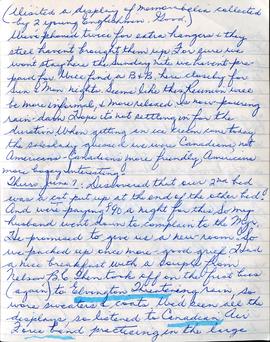 (Visited a display of memorabilia collected
by 2 young Englishmen. Good.)
We've phoned twice for extra hangers & they
still haven't brought them up. For sure we
won't stay here the Sunday nite we haven't pre-
paid for. We'll find a B&B here closeby for
Sun & Mon nights. Seems like this Reunion will
be more informal, & more relaxed. Is now pouring
rain - damn. Hope its not settling in for the
duration. When getting an ice cream cone today
the saleslady guessed we were Canadians, not
Americans - Canadians more friendly, Americans
more bossy. Interesting
Thurs. June 7: Discovered that our 2nd bed
was a cot put up at the end of the other bed!
And were paying $90 a night for this. So my
husband went down to complain to the Mgr.
He promised to give us a new room. So
we packed up once more - good grief. Had
a nice breakfast with a couple from
Nelson, B.C. Then took off on the first bus
(again) to Elvington. Threatening rain, so
wore sweaters & coats. We'd seen all the
displays, so listened to Canadian Air
Force band practicing in the large